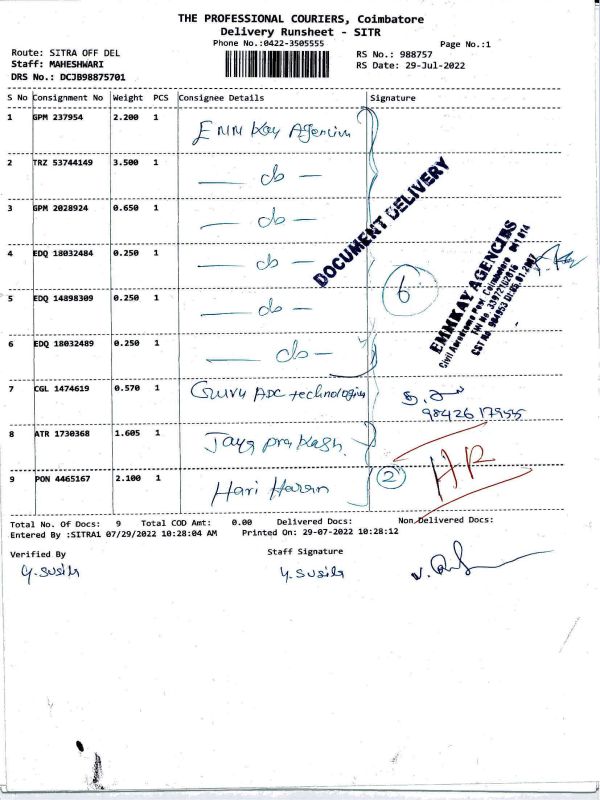 THE PROFESSIONAL COURIERS, Coimbatore
Delivery Runsheet - SITR
Phone No.:0422-3505555
Page No.:1
Route: SITRA OFF DEL
RS No.: 988757
Staff: MAHESHWARI
RS Date: 29-Jul-2022
DRS No.: DCJB98875701
S No Consignment No Weight PCS Consignee Details Signature
1 GPM 237954 2.200 1 Emm Kay Agencies
2 TRZ 53744149 3.500 1 — do —
3 GPM 2028924 0.650 1 — do —
4 EDQ 18032484 0.250 1 — do —
5 EDQ 14898309 0.250 1 — do —
6 EDQ 18032489 0.250 1 — do —
DOCUMENT DELIVERY
6
EMMKAY AGENCIES
Civil Aerodrome Post, Coimbatore 641 014
7 CGL 1474619 0.570 1 Guru ADC technologies
98426 179555
8 ATR 1730368 1.605 1 Jaya prakash.
9 PON 4465167 2.100 1 Hari Haran
2
Total No. Of Docs: 9 Total COD Amt: 0.00 Delivered Docs: Non Delivered Docs:
Entered By :SITRA1 07/29/2022 10:28:04 AM Printed On: 29-07-2022 10:28:12
Verified By Staff Signature
y. susila y. susila